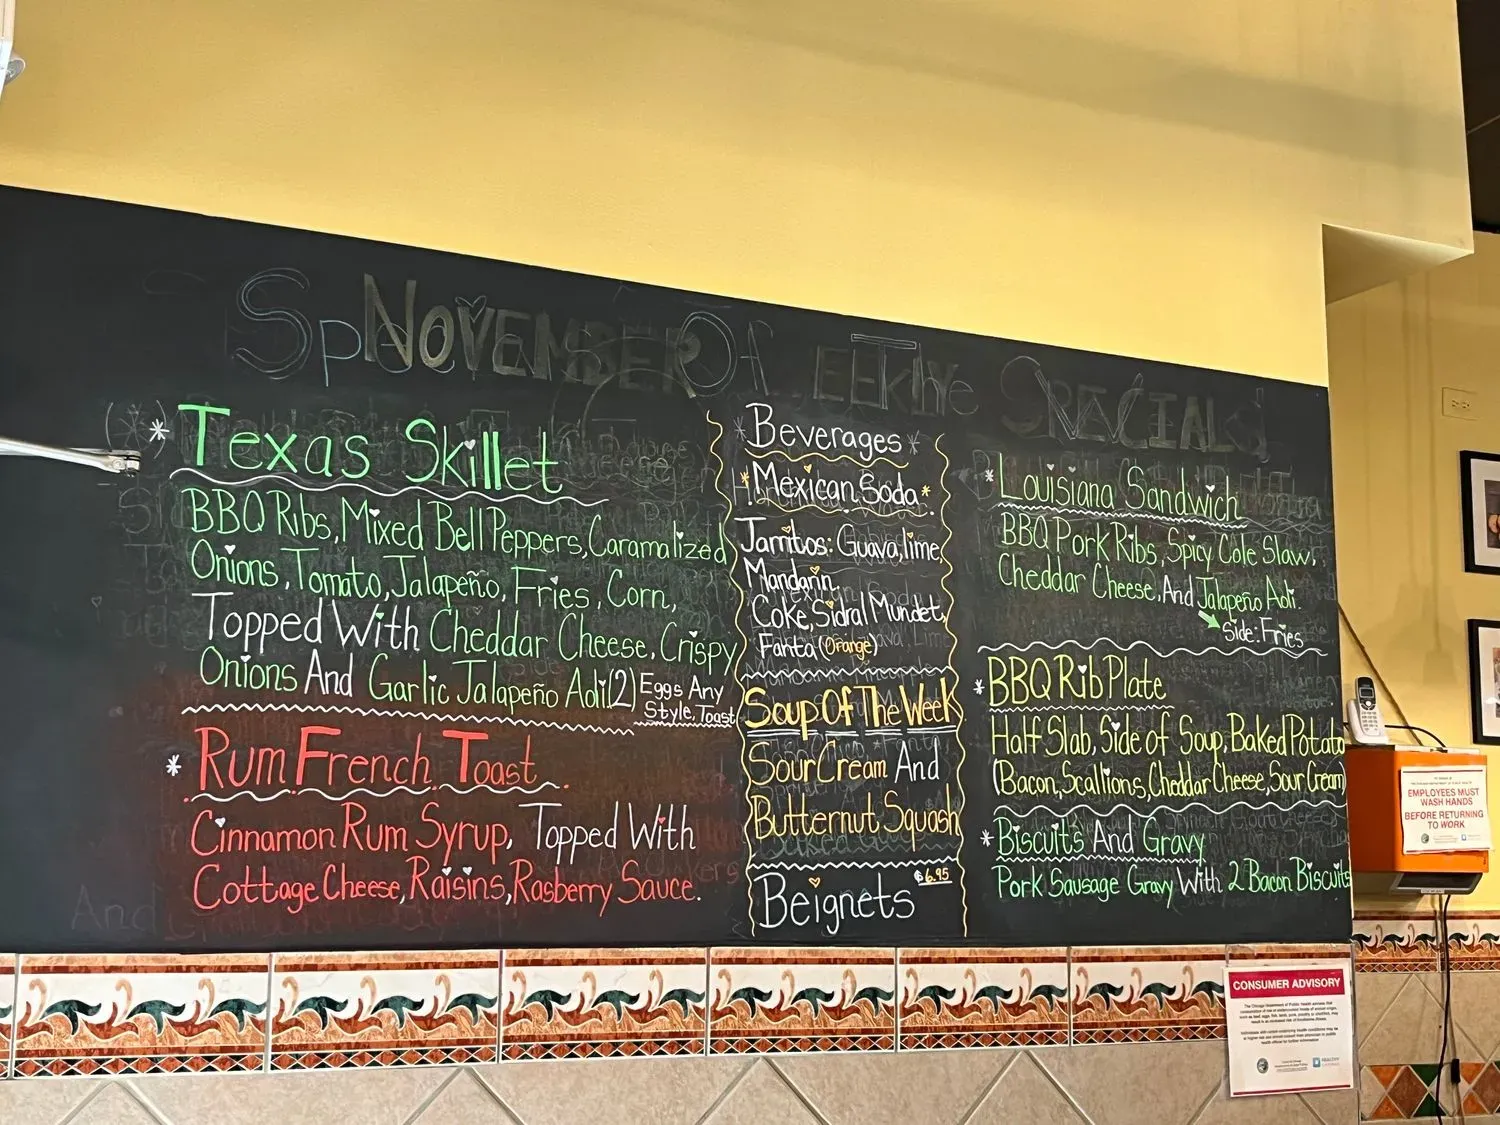 November Specials
* Texas Skillet
BBQ Ribs, Mixed Bell Peppers, Caramalized
Onions, Tomato, Jalapeño, Fries, Corn,
Topped With Cheddar Cheese, Crispy
Onions And Garlic Jalapeño Aoli (2) Eggs Any
Style, Toast
* Rum French Toast
Cinnamon Rum Syrup, Topped With
Cottage Cheese, Raisins, Rasberry Sauce.
* Beverages *
* Mexican Soda *
Jarritos: Guava, lime,
Mandarin,
Coke, Sidral Mundet,
Fanta (Orange)
Soup Of The Week
Sour Cream And
Butternut Squash
Beignets $6.95
* Louisiana Sandwich
BBQ Pork Ribs, Spicy Cole Slaw,
Cheddar Cheese, And Jalapeño Aoli.
Side: Fries
* BBQ Rib Plate
Half Slab, Side of Soup, Baked Potato
(Bacon, Scallions, Cheddar Cheese, Sour Cream)
* Biscuits And Gravy
Pork Sausage Gravy With 2 Bacon Biscuits
EMPLOYEES MUST
WASH HANDS
BEFORE RETURNING
TO WORK
CONSUMER ADVISORY